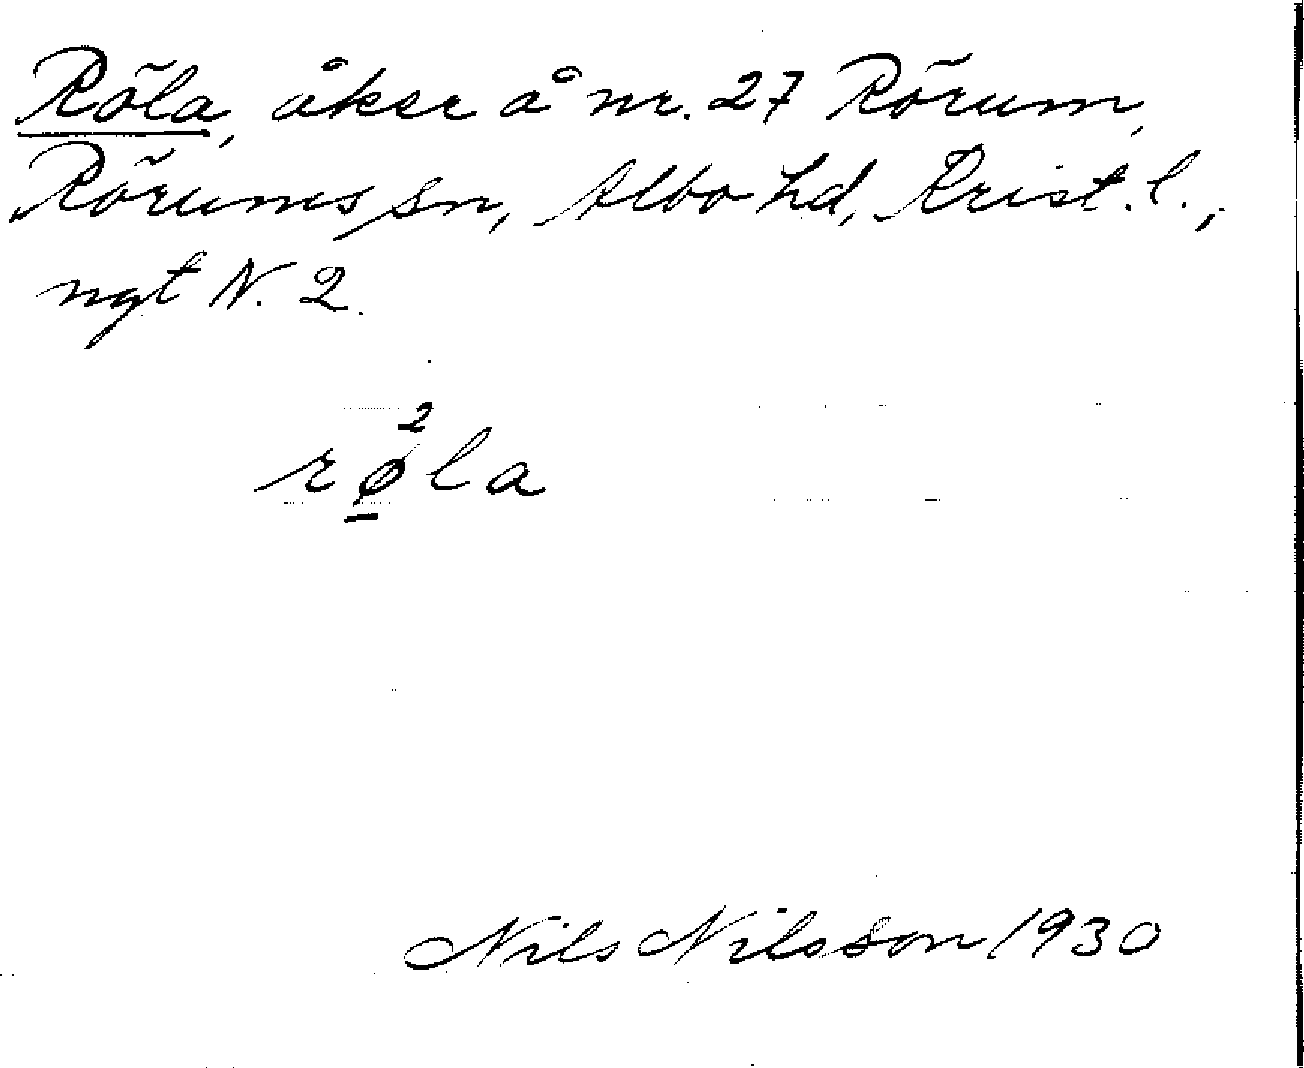 Röla, åker å nr. 27 Rörum,
Rörums sn, Albo hd, Krist. l.,
ngt N. 2.
rø̱²la
Nils Nilsson 1930